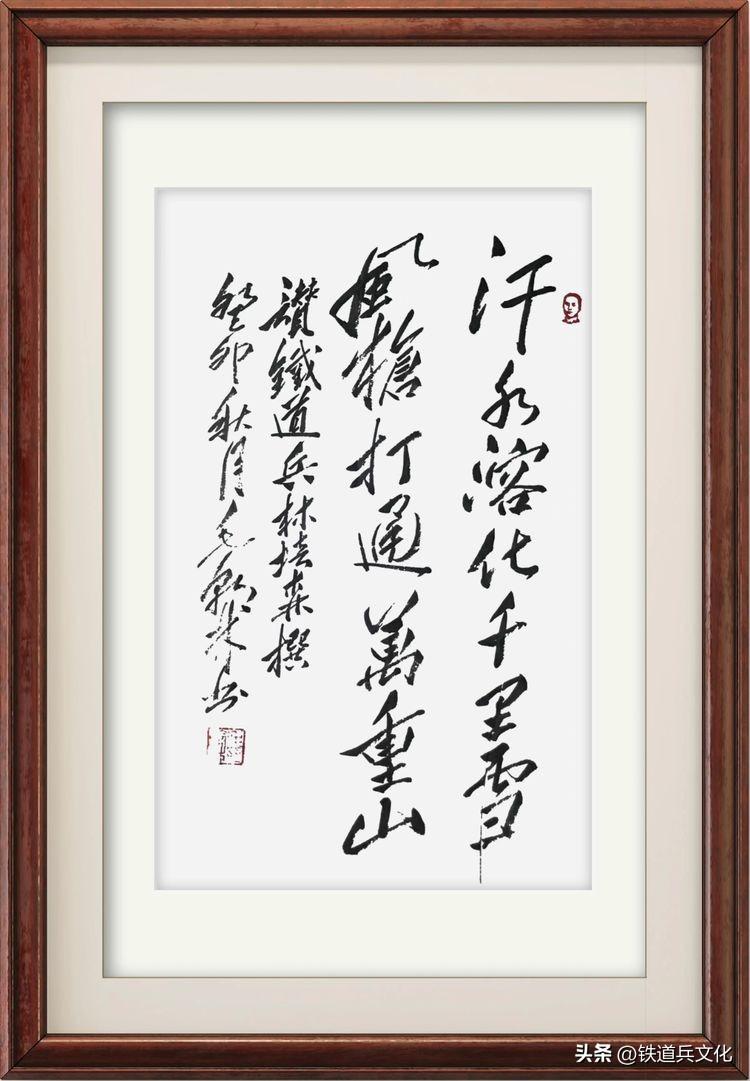 汗水溶化千里雪
風槍打通萬重山
讚鐵道兵林培森撰
癸卯秋月毛
头条 @铁道兵文化